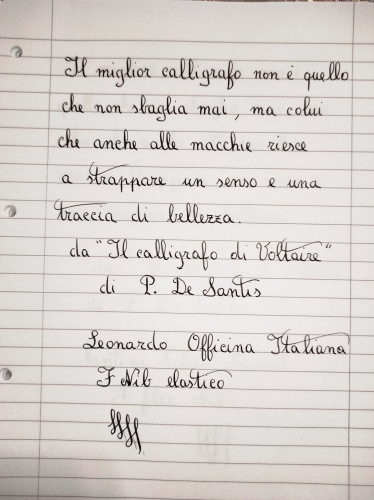 Il miglior calligrafo non è quello
che non sbaglia mai, ma colui
che anche alle macchie riesce
a strappare un senso e una
traccia di bellezza.
da "Il calligrafo di Voltaire"
di P. De Santis
Leonardo Officina Italiana
F Nib elastico